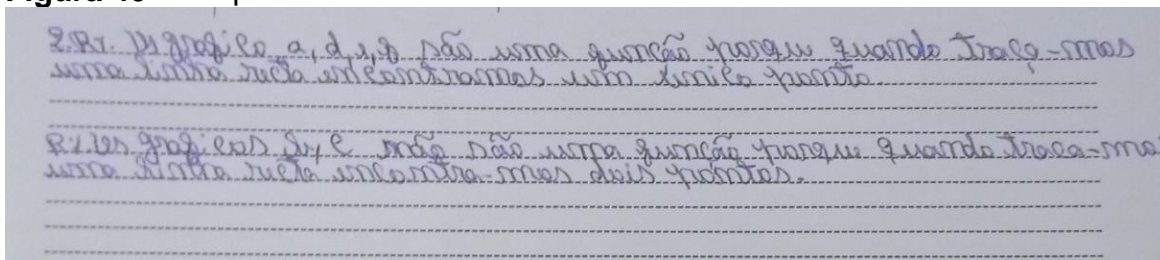 2.R1. Us grafico a, d, e, f são uma função porque quando traça-mos
uma linha recta encontramos um único ponto
R1 Us graficos b, c não são uma função porque quando traça-mo
uma linha recta encontra-mos dois pontos.